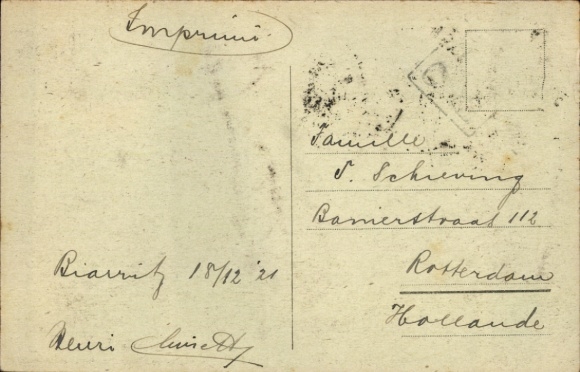 Imprimé
Biarritz 18/12 '21
Henri
Famille
S. Schieving
Banierstraat 112
Rotterdam
Hollande